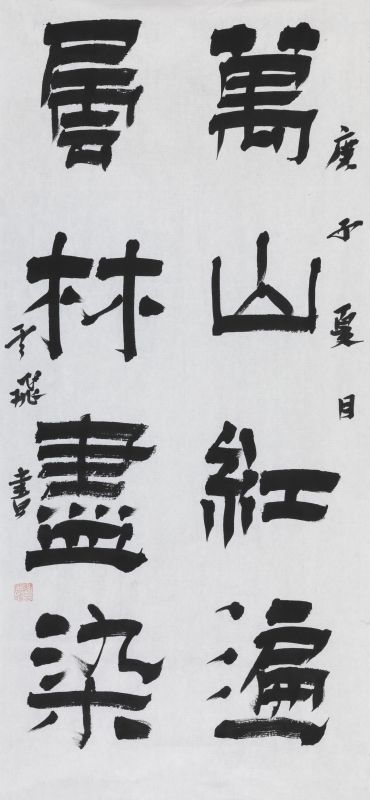 庚子夏日
萬山紅遍
層林盡染
云飛書